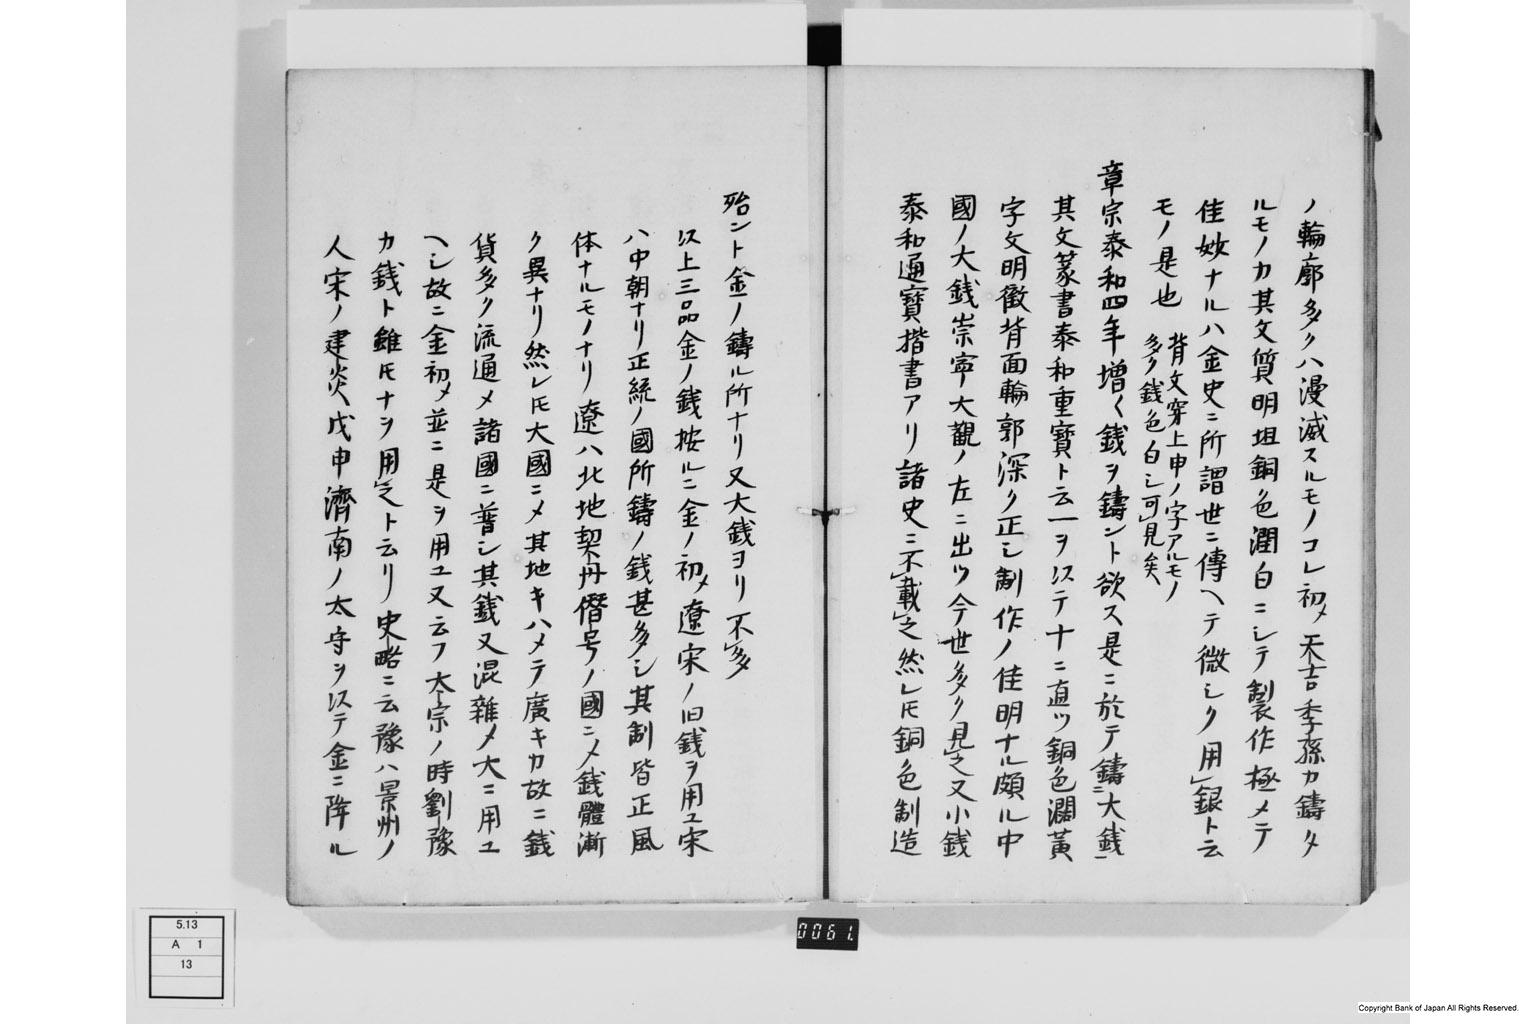 ノ輪廓多クハ漫滅スルモノコレ初メ天吉季孫カ鑄タ
ルモノカ其文質明坦銅色潤白ニシテ製作極メテ
佳妙ナルハ金史ニ所謂世ニ傳ヘテ微シク用銀ト云
モノ是也
背文穿上申ノ字アルモノ
多ク銭色白シ可見矣
章宗泰和四年増く銭ヲ鑄ント欲ス是ニ於テ鑄二大銭一
其文篆書泰和重寶ト云一ヲ以テ十ニ直ツ銅色濶黃
字文明徹背面輪郭深ク正シ制作ノ佳明ナル頗ル中
國ノ大銭崇寧大觀ノ左ニ出ツ今世多ク見之又小銭
泰和通寶揩書アリ諸史ニ不載之然レ𪜈銅色制造
殆ント金ノ鑄ル所ナリ又大銭ヨリ不多
以上三品金ノ銭按ルニ金ノ初メ遼宋ノ旧銭ヲ用ユ宋
ハ中朝ナリ正統ノ國所鑄ノ銭甚多シ其制皆正風
体ナルモノナリ遼ハ北地契丹僭号ノ國ニメ銭體漸
ク異ナリ然レ𪜈大國ニメ其地キハメテ廣キカ故ニ銭
貨多ク流通メ諸國ニ普シ其銭又混雜メ大ニ用ユ
ヘシ故ニ金初メ並ニ是ヲ用ユ又云フ太宗ノ時劉豫
カ銭ト雖𪜈ナヲ用之ト云リ史略ニ云豫ハ景州ノ
人宋ノ建炎戊申濟南ノ太守ヲ以テ金ニ降ル
0061.
5.13
A 1
13
Copyright Bank of Japan All Rights Reserved.